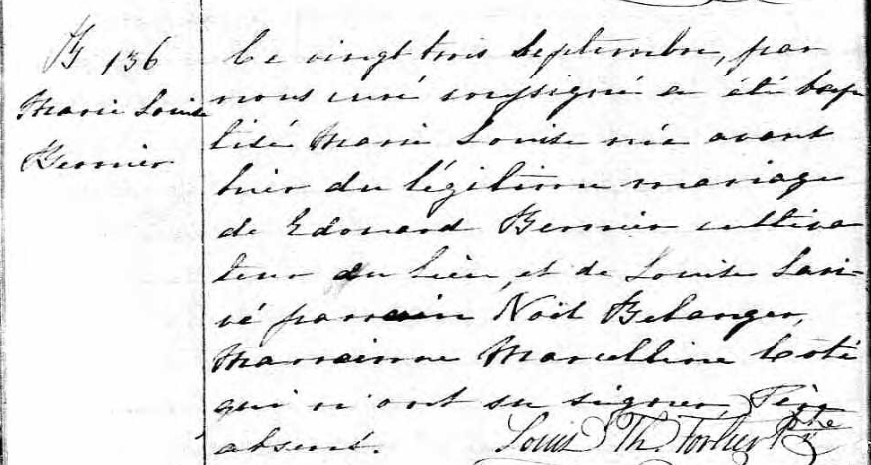 B 136
Marie Louise
Bernier
Le vingt trois Septembre, par
nous curé soussigné a été bap
tisé Marie Louise née avant
hier du légitime mariage
de Edouard Bernier cultiva
teur du lieu, et de Louise Lari-
vé parrain Noël Belanger,
Marrainne Marcelline Coté
qui n'ont su signer, Père
absent.
Louis Th. Fortier Ptre